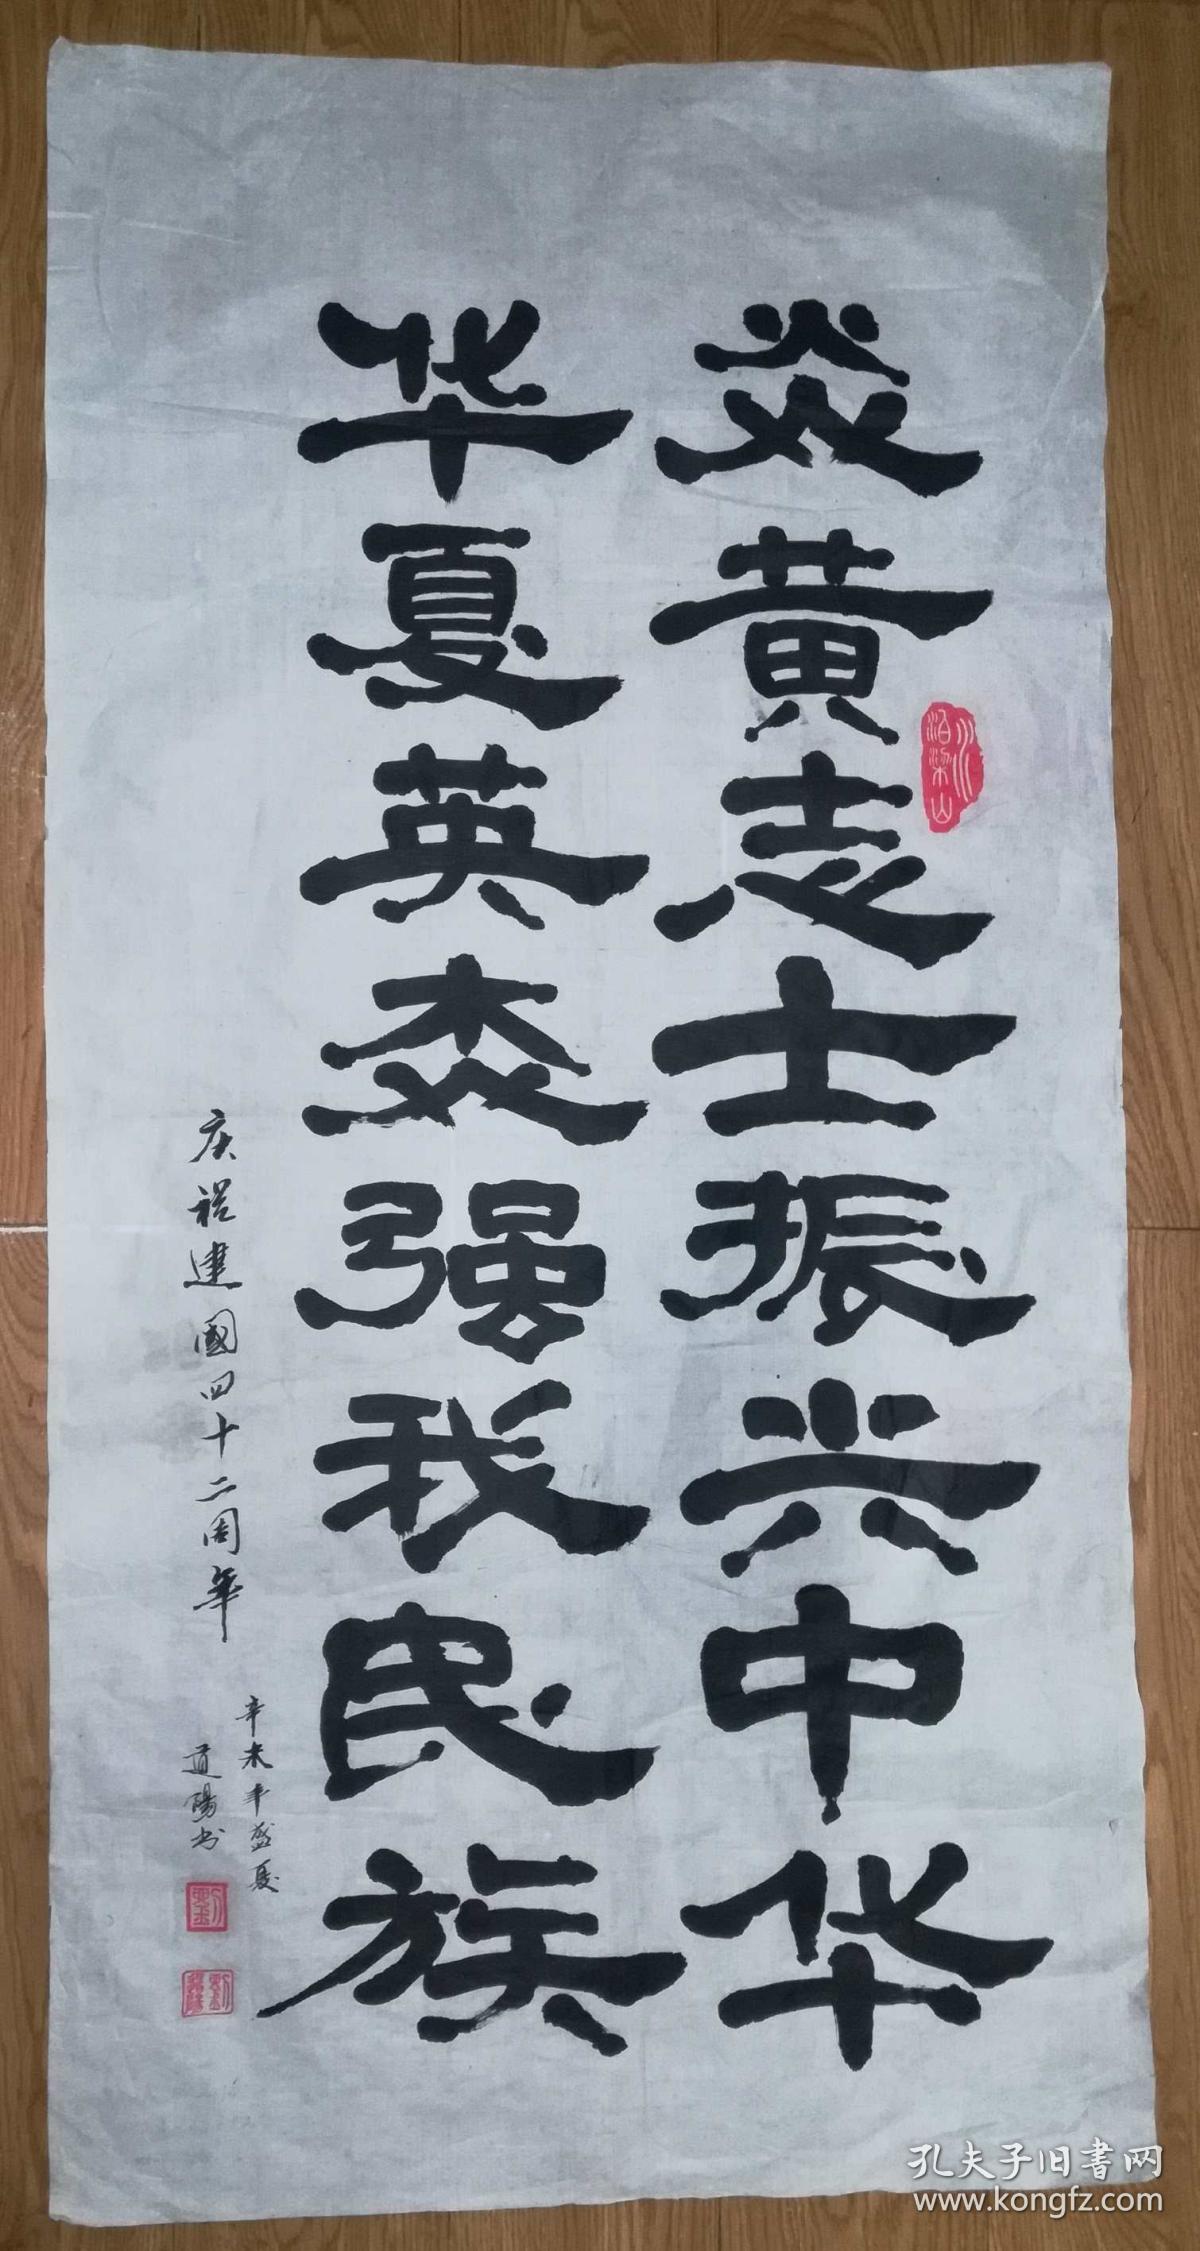 炎黄志士振兴中华
华夏英杰强我民族
庆祝建國四十二周年
辛未年盛夏
道陽书
水泊梁山
孔夫子旧書网
www.kongfz.com